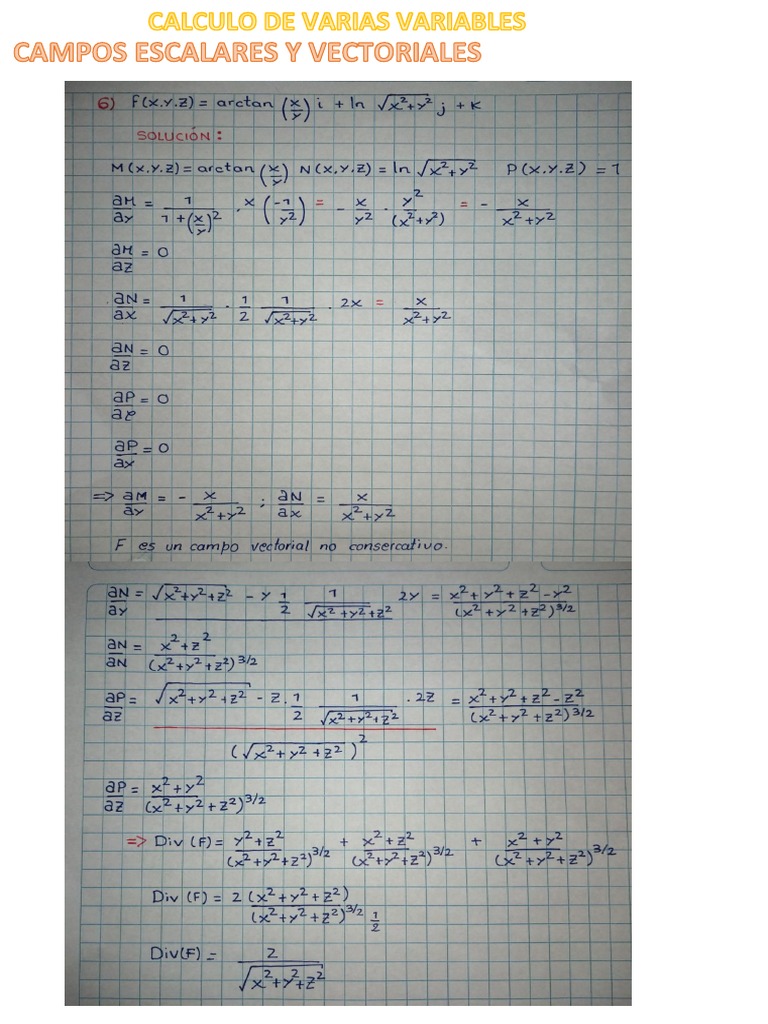 CALCULO DE VARIAS VARIABLES
CAMPOS ESCALARES Y VECTORIALES
6) F(x.y.z) = arctan (x/y) i + ln √x²+y² j + k
SOLUCIÓN:
M(x.y.z) = arctan (x/y) N(x,y.z) = ln √x²+y² P(x.y.z) = 1
∂M/∂y = 1/(1+(x/y)²) . x (-1/y²) = - x/y² . y²/(x²+y²) = - x/(x²+y²)
∂M/∂z = 0
∂N/∂x = 1/√x²+y² . 1/2 1/√x²+y² . 2x = x/(x²+y²)
∂N/∂z = 0
∂P/∂e = 0
∂P/∂x = 0
=> ∂M/∂y = - x/(x²+y²) ; ∂N/∂x = x/(x²+y²)
F es un campo vectorial no consercativo.
∂N/∂y = √x²+y²+z² - y 1/2 1/√x²+y²+z² 2y = (x²+y²+z²-y²)/(x²+y²+z²)^3/2
∂N/∂N = (x²+z²)/(x²+y²+z²)^3/2
∂P/∂z = (√x²+y²+z² - z.1/2 1/√x²+y²+z² . 2z)/(√x²+y²+z²)² = (x²+y²+z²-z²)/(x²+y²+z²)^3/2
∂P/∂z = (x²+y²)/(x²+y²+z²)^3/2
=> Div (F) = (y²+z²)/(x²+y²+z²)^3/2 + (x²+z²)/(x²+y²+z²)^3/2 + (x²+y²)/(x²+y²+z²)^3/2
Div (F) = 2 (x²+y²+z²)/(x²+y²+z²)^3/2 1/2
Div(F) = 2/√x²+y²+z²